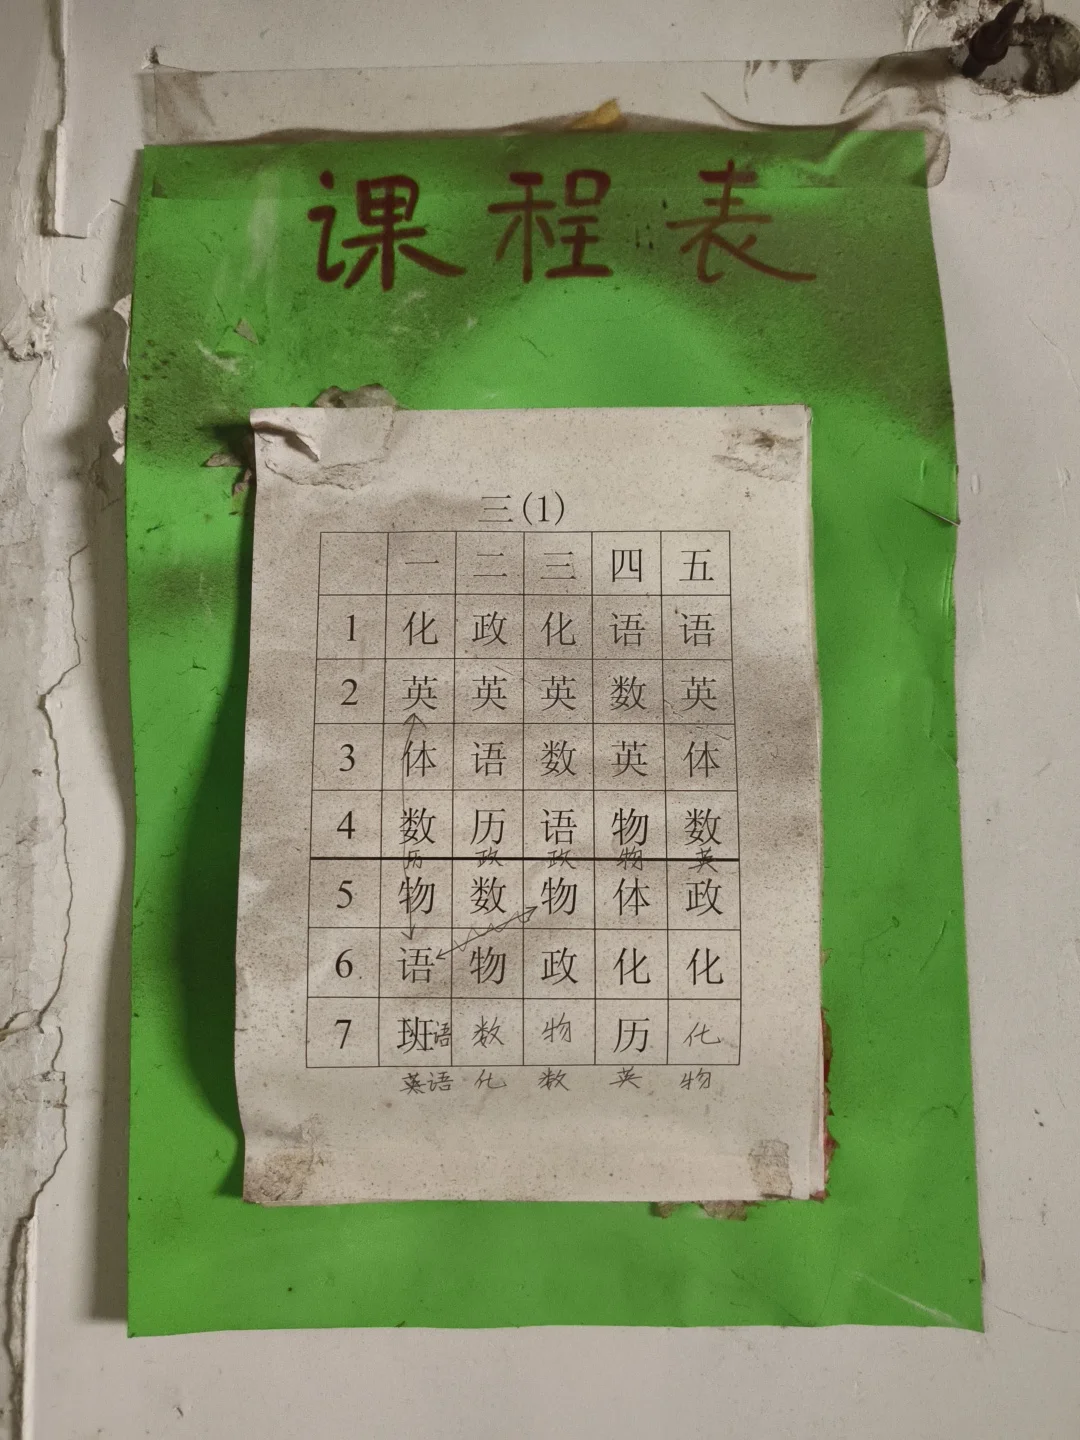 课程表
三(1)
一 二 三 四 五
1 化 政 化 语 语
2 英 英 英 数 英
3 体 语 数 英 体
4 数 历 语 物 数
历 政 政 物 英
5 物 数 物 体 政
6 语 物 政 化 化
7 班语 数 物 历 化
英语 化 数 英 物